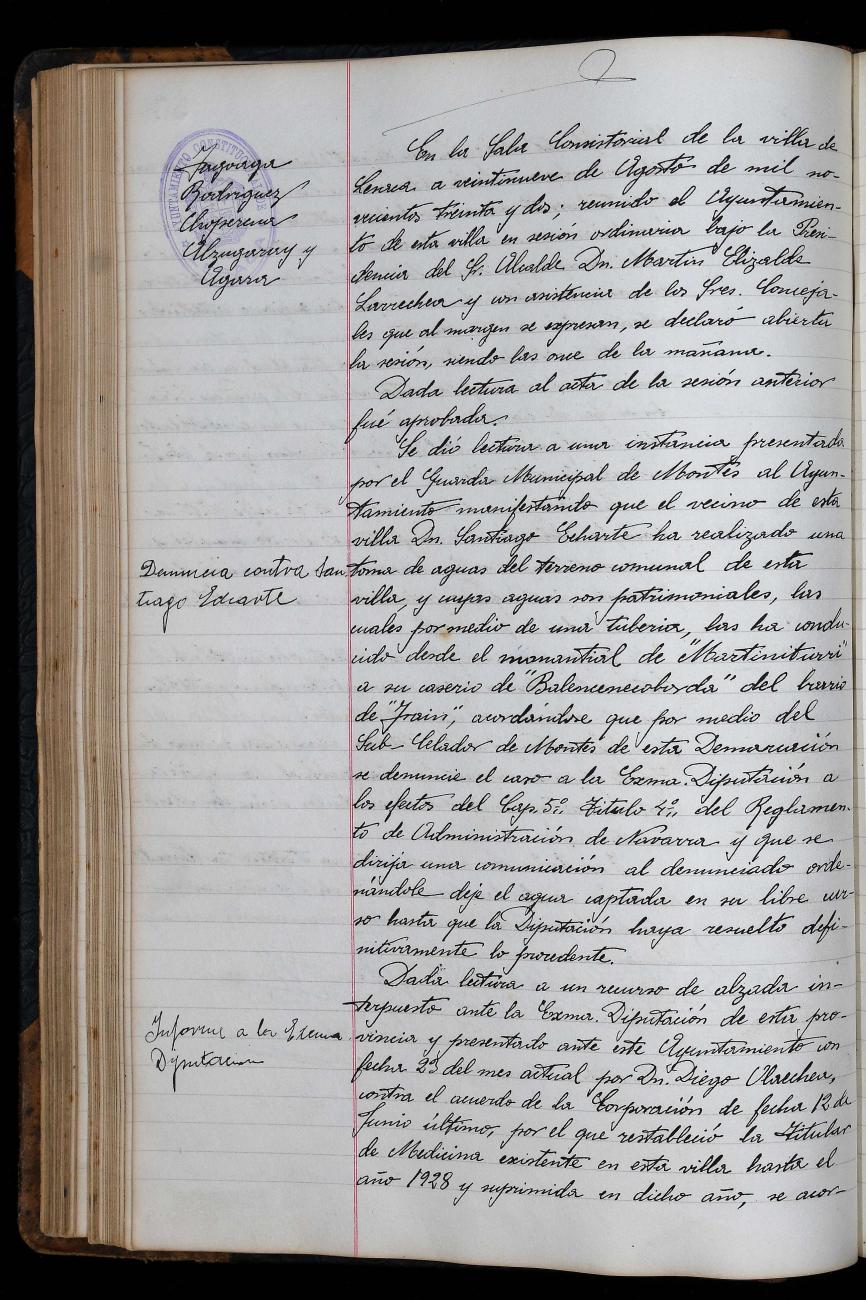 Fagoaga
Rodriguez
Choperena
Alzugaray y
Ugarra
En la Sala Consistorial de la villa de
Lesaca a veintinueve de Agosto de mil no-
vecientos treinta y dos; reunido el Ayuntamien-
to de esta villa en sesión ordinaria bajo la Presi-
dencia del Sr. Alcalde Dn. Martin Elizalde
Larrechea y con asistencia de los Sres. Conceja-
les que al margen se expresan, se declaró abierta
la sesión, siendo las once de la mañana.
Dada lectura al acta de la sesión anterior
fué aprobada.
Se dió lectura a una instancia presentada
por el Guarda Municipal de Montes al Ayun-
tamiento manifestando que el vecino de esta
villa Dn. Santiago Echarte ha realizado una
Denuncia contra San
tiago Echarte
toma de aguas del terreno comunal de esta
villa, y cuyas aguas son patrimoniales, las
cuales por medio de una tuberia, las ha condu-
cido desde el manantial de "Martiniturri"
a su caserio de "Balencenecoborda" del barrio
de "Frain", acordándose que por medio del
Sub-Celador de Montes de esta Demarcación
se denuncie el caso a la Exma. Diputación a
los efectos del Cap. 5º, Titulo 4º, del Reglamen-
to de Administración de Navarra y que se
dirija una comunicación al denunciado orde-
nándole deje el agua captada en su libre cur-
so hasta que la Diputación haya resuelto defi-
nitivamente lo procedente.
Dada lectura a un recurso de alzada in-
terpuesto ante la Exma. Diputación de esta pro-
Informe a la Excma
Diputacion
vincia y presentado ante este Ayuntamiento con
fecha 23 del mes actual por Dn. Diego Olaechea,
contra el acuerdo de la Corporación de fecha 12 de
Junio último, por el que restableció la Titular
de Medicina existente en esta villa hasta el
año 1928 y suprimida en dicho año, se acor-